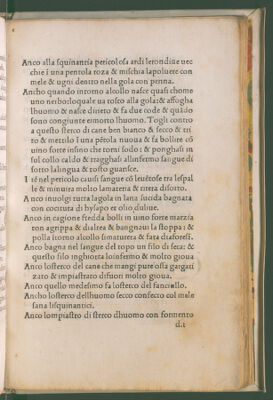 Anco alla squinantia pericolosa ardi lerondine uec
chie i una pentola roza & mischia lapoluere con
mele & ugni dentro nella gola con penna.
Ancho quando intorno alcollo nasce quasi chome
uno nerbo loquale ua tosto alla gola: & affogha
lhuomo & nasce dirieto & fa due code & quādo
sono congiunte e morto lhuomo. Togli contro
a questo sterco di cane ben bianco & secco & tri
to & mettilo i una pētola nuoua & fa bollire cō
uino forte insino che torni sodo: & ponghasi in
sul collo caldo & tragghasi allinfermo sangue di
sotto lalingua & tosto guarisce.
I tē nel pericolo causi sangue cō leuētose tra lespal
le & minutra molto lamateria & titera disotto.
A nco inuolgi tutta lagola in lana sucida bagnata
con cocitura di hysapo et olio duliue.
Anco in cagione fredda bolli in uino forte marzia
ton agrippa & dialtea & bangnaui la stoppa: &
polla itorno alcollo simaturera & fara disaforest.
Anco bagna nel sangue del topo un filo di seta: &
questo filo inghiotta loinfermo & molto gioua
Anco losterco del cane che mangi pure ossa gargari
zato & impiastrato difuori molto gioua.
Anco quello medesimo fa losterco del fanciullo.
Ancho losterco dellhuomo secco confecto col mele
sana lisquinantici.
Anco lompiastro di sterco dhuomo con formento
d.i